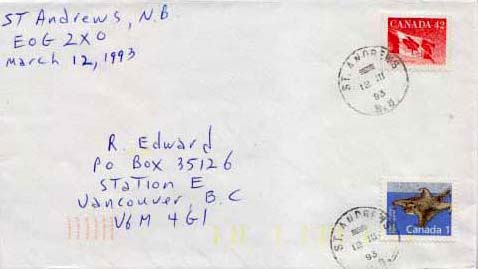 ST Andrews, N.B
EOG 2XO
March 12, 1993
CANADA 42
ST. ANDREWS
12 III
93
N.B.
R. Edward
PO Box 35126
STaTion E
Vancouver, B.C
V6M 4G1
Canada 1
ST. ANDREWS
12 III
93